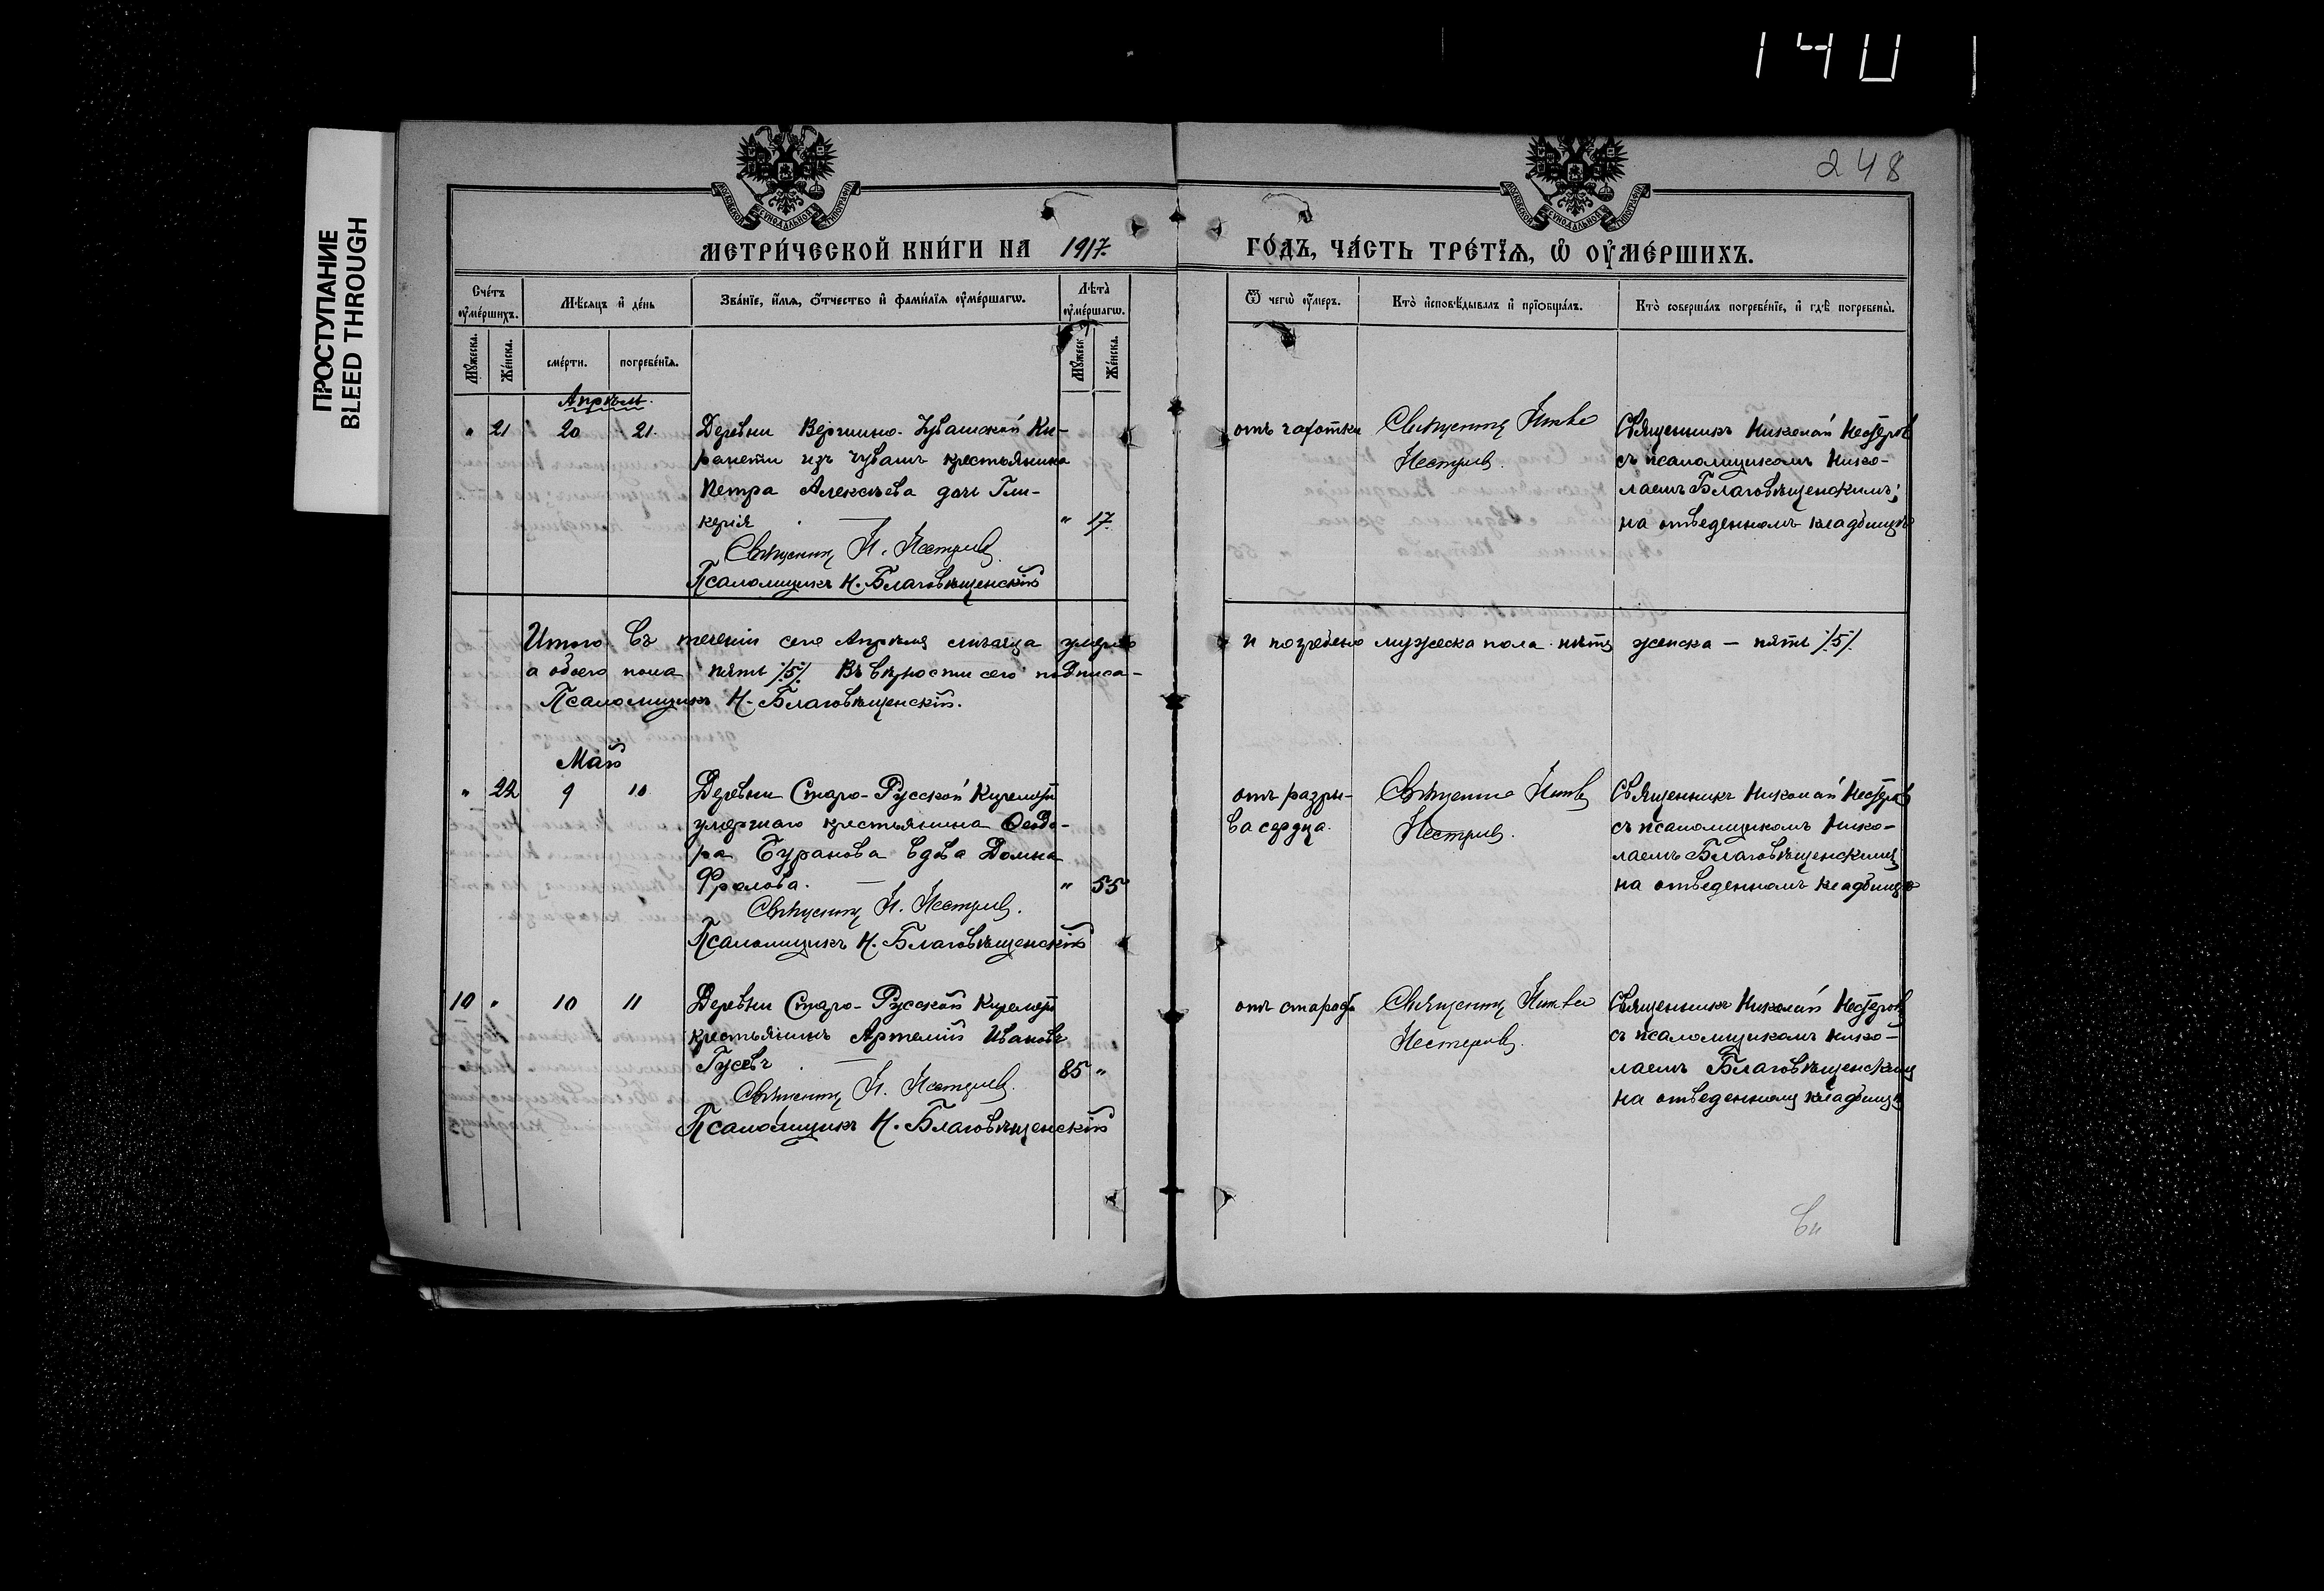 140
ПРОСТУПАНИЕ
BLEED THROUGH
248
МОСКОВСКОЙ СѴНОДАЛЬНОЙ ТИПОГРАФІИ
МОСКОВСКОЙ СѴНОДАЛЬНОЙ ТИПОГРАФІИ
МЕТРИ́ЧЕСКОЙ КНИ́ГИ НА 1917. ГО́ДЪ, ЧА́СТЬ ТРЕ́ТЇѦ, Ѡ҆ ОУ҆МЕ́РШИХЪ.
Счетъ оумершихъ.
Мѣсяцъ и день
Званїе, имя, отчество и фамилїя оумершагѡ.
Лѣта оумершагѡ.
Ѿ чегѡ оумеръ.
Кто исповѣдывалъ и прїобщалъ.
Кто совершалъ погребенїе, и гдѣ погребены.
Мужеска.
Женска.
смерти.
погребенїя.
Мужеск
Женска.
Апрѣль.
" 21 20 21.
Деревни Вершино-Чувашской Ки-
ремети изъ чувашъ крестьянина
Петра Алексѣева дочь Гли-
керія " 17.
Священникъ Н. Нестеровъ
Псаломщикъ Н. Благовѣщенскій
отъ чахотки
Священникъ
Нестеровъ.
Священникъ Николай Нестеровъ
съ псаломщикомъ Нико-
лаемъ Благовѣщенскимъ;
на отведенномъ кладбищѣ
Итого въ теченіи сего Апрѣля мѣсяца умерло и погребено мужеска пола нѣтъ женска — пять /5/.
а обоего пола пять /5/. Въ вѣрности сего подписа-
Псаломщикъ Н. Благовѣщенскій.
Май
" 22 9 10
Деревни Старо-Русской Киремети
умершаго крестьянина Ѳеодо-
ра Буранова вдова Домна
Фролова. " 55
Священникъ Н. Нестеровъ.
Псаломщикъ Н. Благовѣщенскій
отъ разры-
ва сердца.
Священникъ
Нестеровъ.
Священникъ Николай Нестеровъ
съ псаломщикомъ Нико-
лаемъ Благовѣщенскимъ
на отведенномъ кладбищѣ
10 " 10 11
Деревни Старо-Русской Киремети
крестьянинъ Артемій Ивановъ
Гусевъ 85 "
Священникъ Н. Нестеровъ.
Псаломщикъ Н. Благовѣщенскій
отъ старости
Священникъ
Нестеровъ.
Священникъ Николай Нестеровъ
съ псаломщикомъ Нико-
лаемъ Благовѣщенскимъ
на отведенномъ кладбищѣ